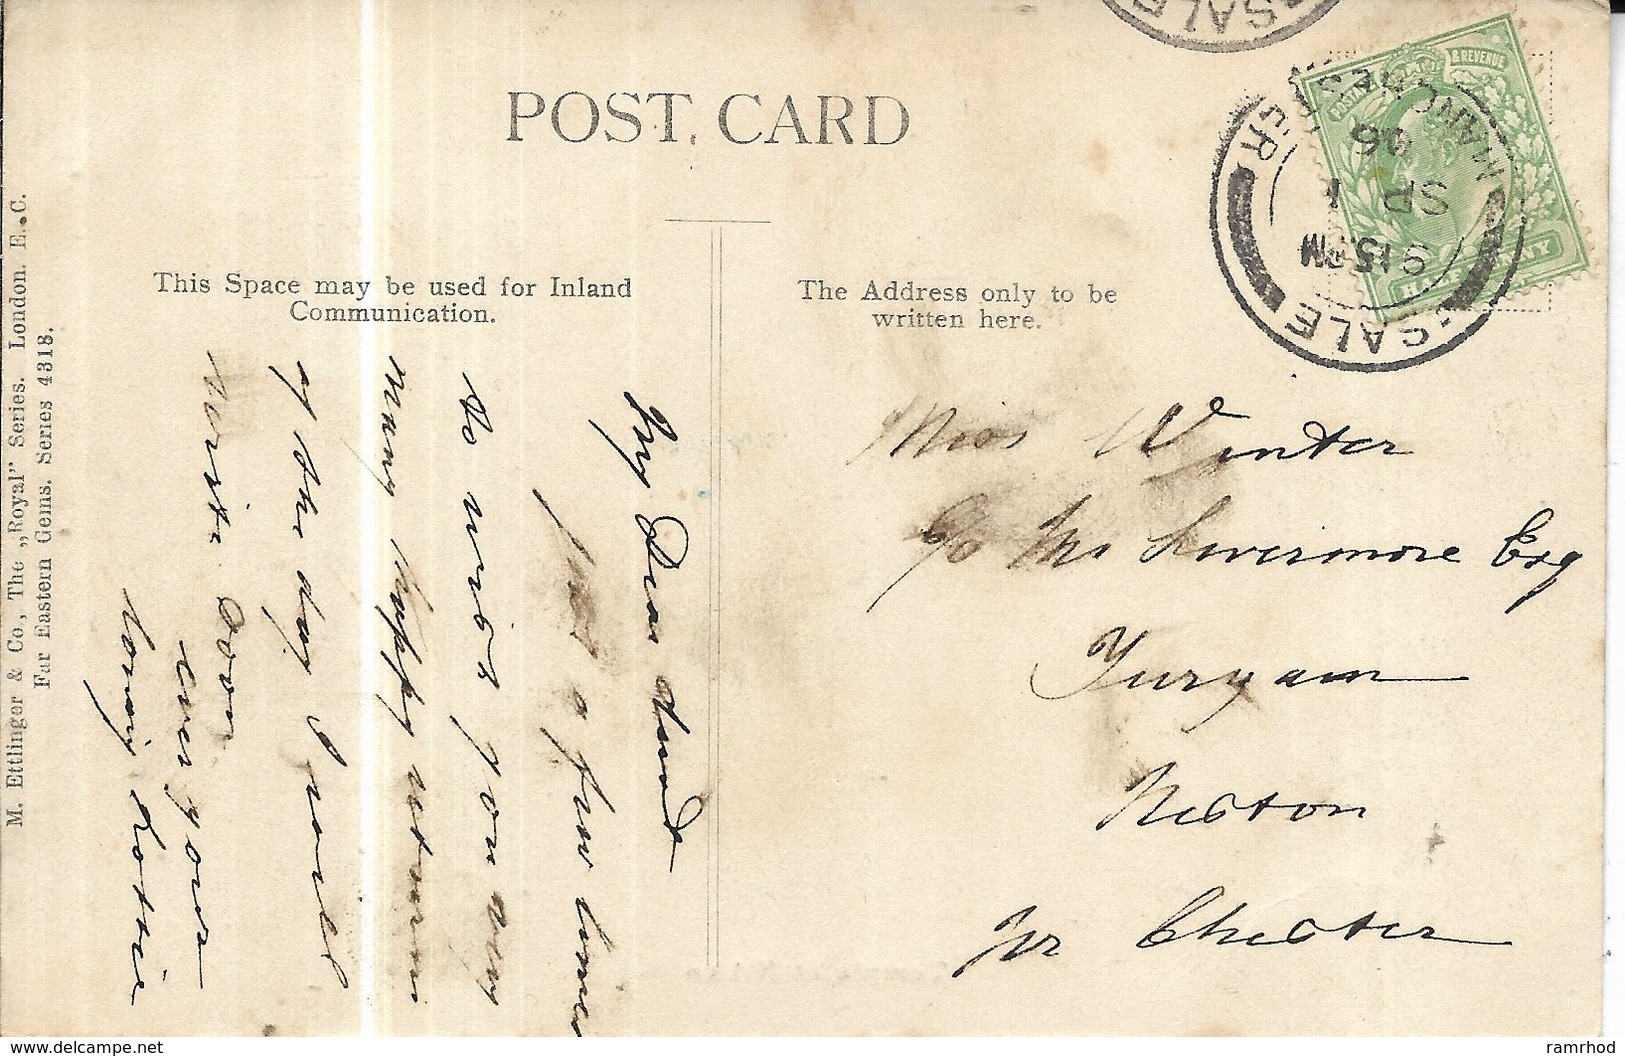 POST CARD
This Space may be used for Inland
Communication.
The Address only to be
written here.
M. Ettlinger & Co., The „Royal" Series. London. E.C.
Far Eastern Gems. Series 4318.
My Dear Aunt
Just a few lines
to wish you very
Many happy returns
of the day I will
write soon
ever your
loving Lottie
Miss Winter
c/o Livermore Esq
Neston
Nr Chester
& REVENUE
SALE
MANCHESTER
9 15 PM
SP 1
06
SALE
www.delcampe.net
ramrhod